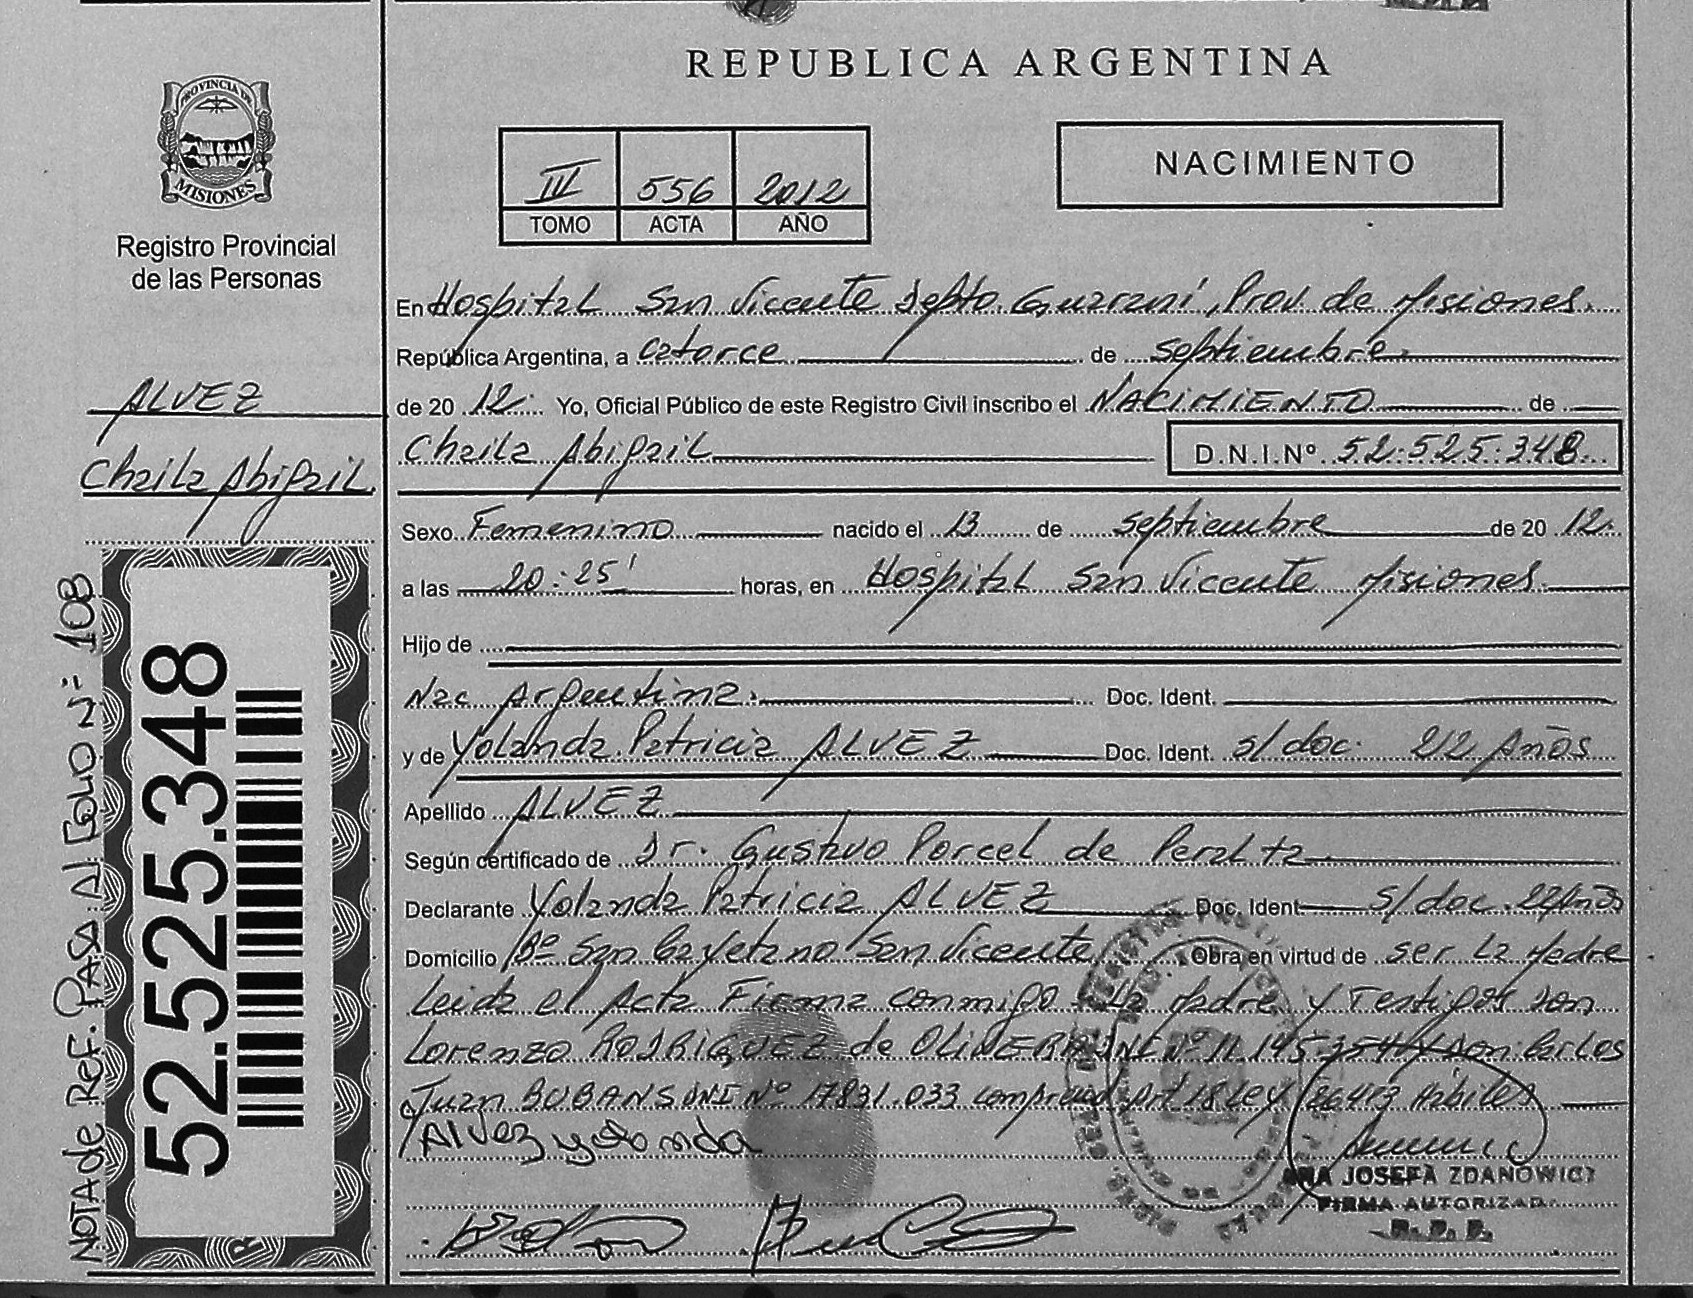 REPUBLICA ARGENTINA
PROVINCIA DE
MISIONES
Registro Provincial
de las Personas
ALVEZ
Chaila Abigail
NOTA de REF. PASA Al FOLIO Nº 108
52.525.348
III 556 2012
TOMO ACTA AÑO
NACIMIENTO
En Hospital San Vicente Depto. Guaraní, Prov. de Misiones.
República Argentina, a catorce de septiembre
de 20 12. Yo, Oficial Público de este Registro Civil inscribo el NACIMIENTO de
Chaila Abigail D.N.I.Nº 52.525.348
Sexo Femenino nacido el 13 de septiembre de 20 12.
a las 20:25' horas, en Hospital San Vicente Misiones.
Hijo de
Nac Argentina. Doc. Ident.
y de Yolanda Patricia ALVEZ Doc. Ident. s/doc. 22 Años
Apellido ALVEZ
Según certificado de Dr. Gustavo Porcel de Peralta
Declarante Yolanda Patricia ALVEZ Doc. Ident s/doc. 22 Años
Domicilio Bº San Cayetano San Vicente Obra en virtud de ser La Madre
Leida el Acta Firma conmigo La Madre y Testigos Don
Lorenzo RODRIGUEZ de OLIVERA DNI Nº 11.145. y Don Carlos
Juan BUBANS DNI Nº 17831.033 Art 18 Ley 26413 Hábiles
Alvez yolanda
ANA JOSEFA ZDANOWICZ
FIRMA AUTORIZADA
R. P. P.